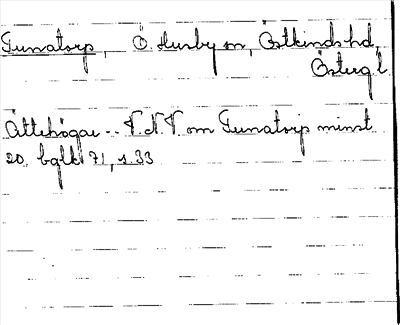 Tunatorp, Ö. Husby sn, Östkinds hd,
Östergl
Ättehögar -- V.N.V. om Tunatorp minst
20. bglk 71, s. 33